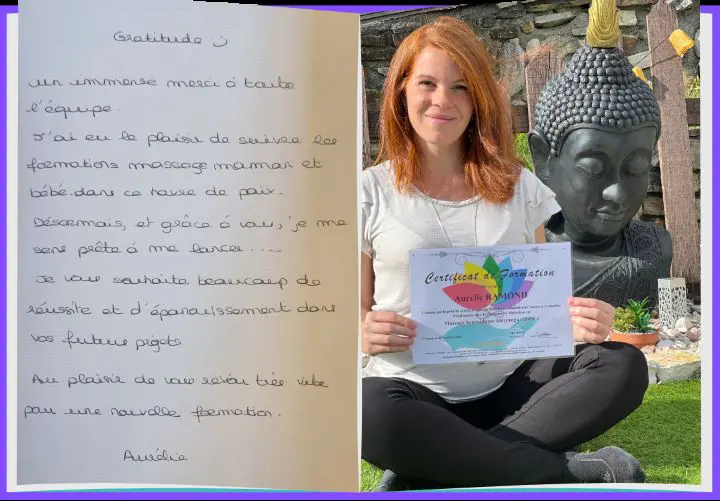 Gratitude :)
un immense merci à toute
l'équipe.
J'ai eu le plaisir de suivre les
formations massage maman et
bébé dans ce havre de paix.
Désormais, et grâce à vous, je me
sens prête à me lancer ....
Je vous souhaite beaucoup de
réussite et d'épanouissement dans
vos futurs projets.
Au plaisir de vous revoir très vite
pour une nouvelle formation.
Aurélie
Certificat de Formation
Aurélie RAMOND